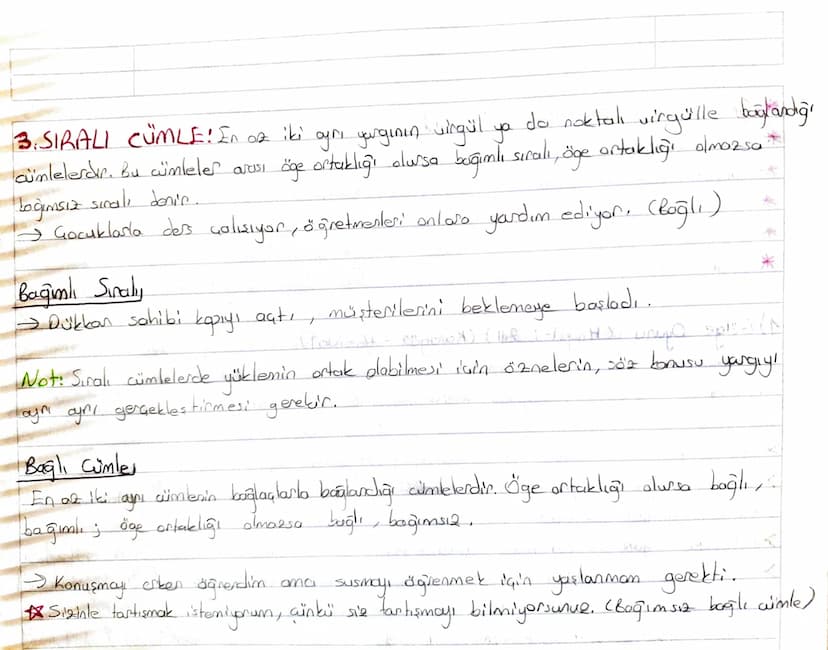 3. SIRALI CÜMLE: En az iki ayrı yargının virgül ya da noktalı virgülle bağlandığı
cümlelerdir. Bu cümleler arası öge ortaklığı olursa bağımlı sıralı, öge ortaklığı olmazsa
bağımsız sıralı denir.
→ Çocuklarla ders çalışıyor, öğretmenleri onlara yardım ediyor. (Bağlı)
Bağımlı Sıralı
→ Dükkan sahibi kapıyı açtı, müşterilerini beklemeye başladı.
Not: Sıralı cümlelerde yüklemin ortak olabilmesi için öznelerin, söz konusu yargıyı
ayrı ayrı gerçekleştirmesi gerekir.
Bağlı Cümle
En az iki ayrı cümlenin bağlaçlarla bağlandığı cümlelerdir. Öge ortaklığı olursa bağlı,
bağımlı; öge ortaklığı olmazsa bağlı, bağımsız.
→ Konuşmayı erken öğrendim ama susmayı öğrenmek için yaşlanmam gerekti.
☆ Sizinle tartışmak istemiyorum, çünkü siz tartışmayı bilmiyorsunuz. (Bağımsız bağlı cümle)